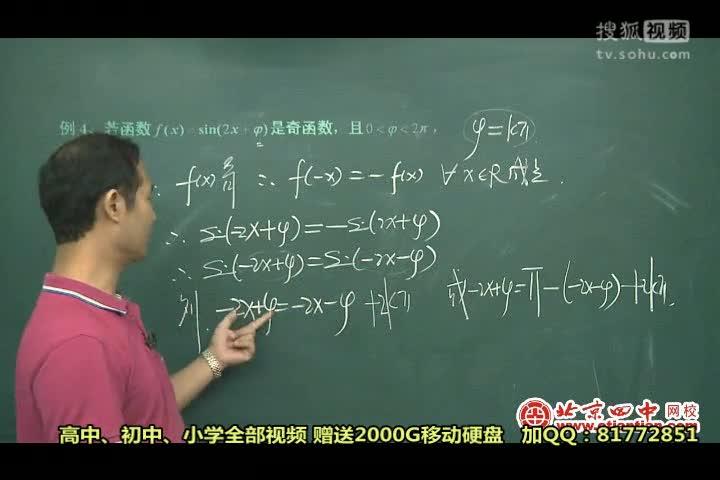 搜狐视频
tv.sohu.com
例4、若函数f(x)=sin(2x+φ)是奇函数，且0<φ<2π，
φ=kπ
∵ f(x)奇 ∴ f(-x)=-f(x) ∀x∈R成立.
∴ Sin(-2x+φ)=-Sin(2x+φ)
∴ Sin(-2x+φ)=Sin(-2x-φ)
则. -2x+φ=-2x-φ+2kπ 或-2x+φ=π-(-2x-φ)+2kπ.
北京四中网校
www.etiantian.com
高中、初中、小学全部视频 赠送2000G移动硬盘 加QQ：81772851